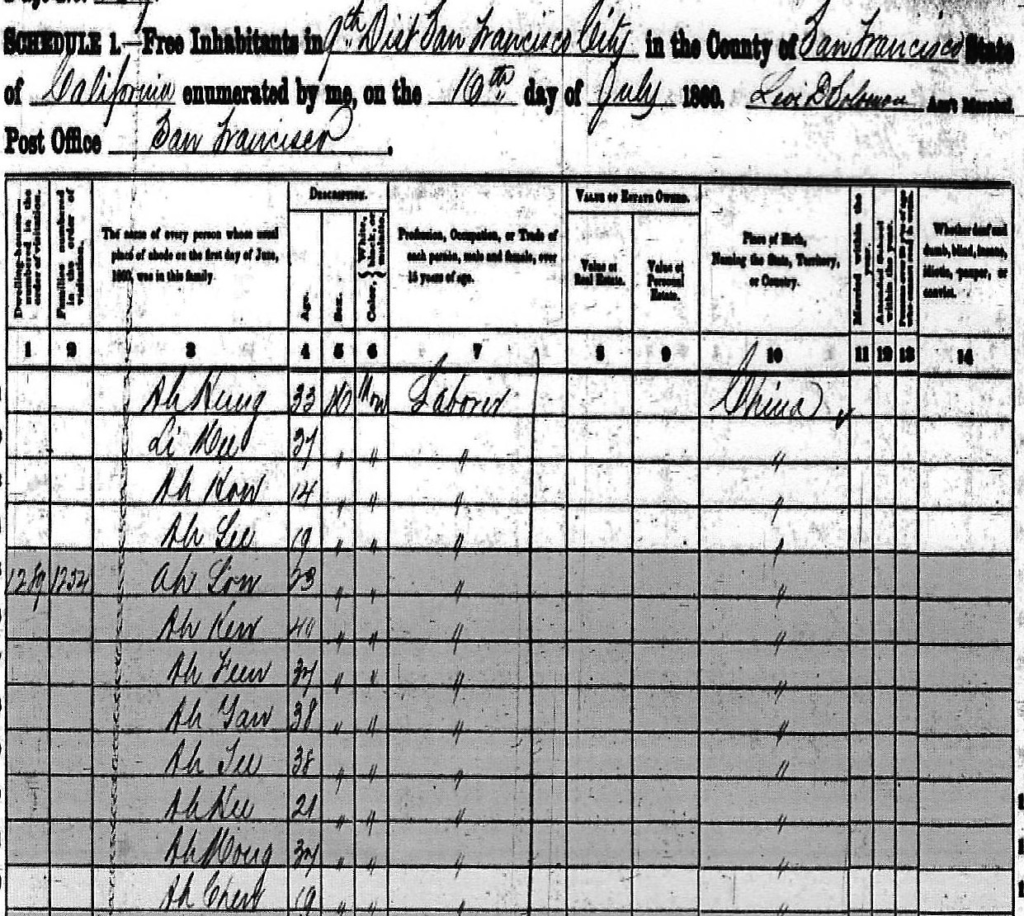 SCHEDULE 1.—Free Inhabitants in 9th Dist San Francisco City in the County of San Francisco State
of California enumerated by me, on the 16th day of July 1860. Levi D Solomon Ass't Marshal.
Post Office San Francisco.
Dwelling-houses—numbered in the order of visitation.
Families numbered in the order of visitation.
The name of every person whose usual place of abode on the first day of June, 1860, was in this family.
DESCRIPTION.
Age.
Sex.
Color, White, black, or mulatto.
Profession, Occupation, or Trade of each person, male and female, over 15 years of age.
VALUE OF ESTATE OWNED.
Value of Real Estate.
Value of Personal Estate.
Place of Birth, Naming the State, Territory, or Country.
Married within the year.
Attended School within the year.
Whether deaf and dumb, blind, insane, idiotic, pauper, or convict.
1 2 3 4 5 6 7 8 9 10 11 12 13 14
Ah Kung 33 M Mon Laborer China
Li Kee " " " "
Ah Kow 14 " " " "
Ah Lee 19 " " " "
1289 1234 Ah Low 23 " " " "
Ah Kew 40 " " " "
Ah Feen " " " "
Ah Yaw 38 " " " "
Ah See 38 " " " "
Ah Kee 21 " " " "
Ah Mong " " " "
Ah Chew 19 " " "